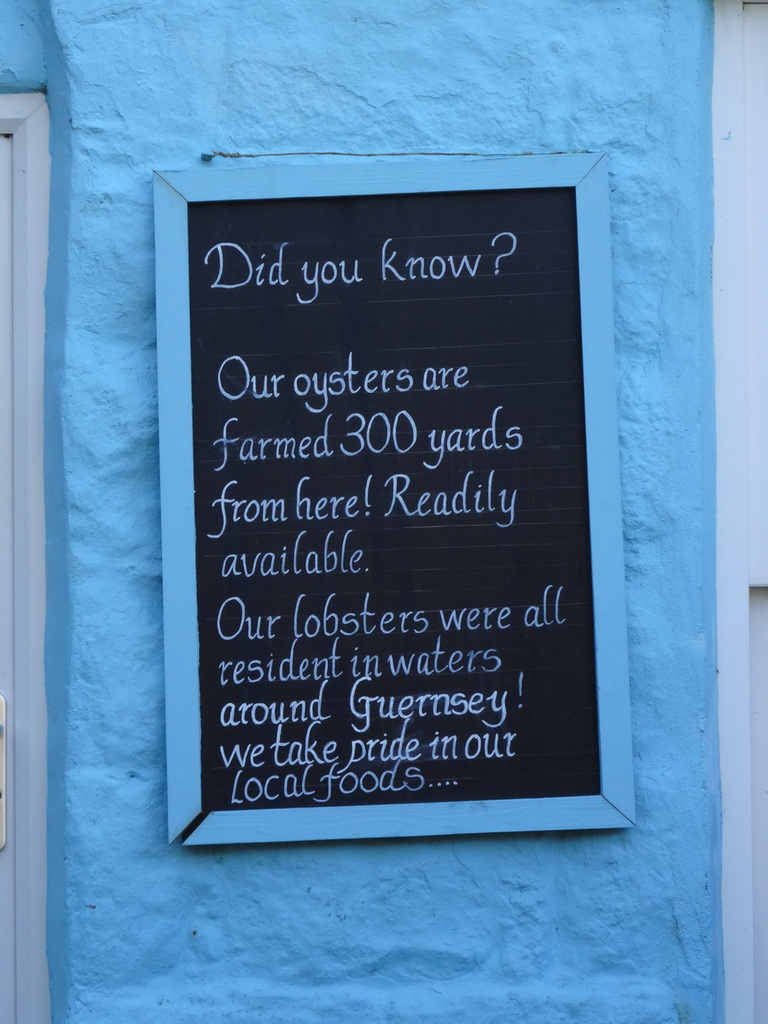 Did you know?
Our oysters are
farmed 300 yards
from here! Readily
available.
Our lobsters were all
resident in waters
around Guernsey!
we take pride in our
Local foods....